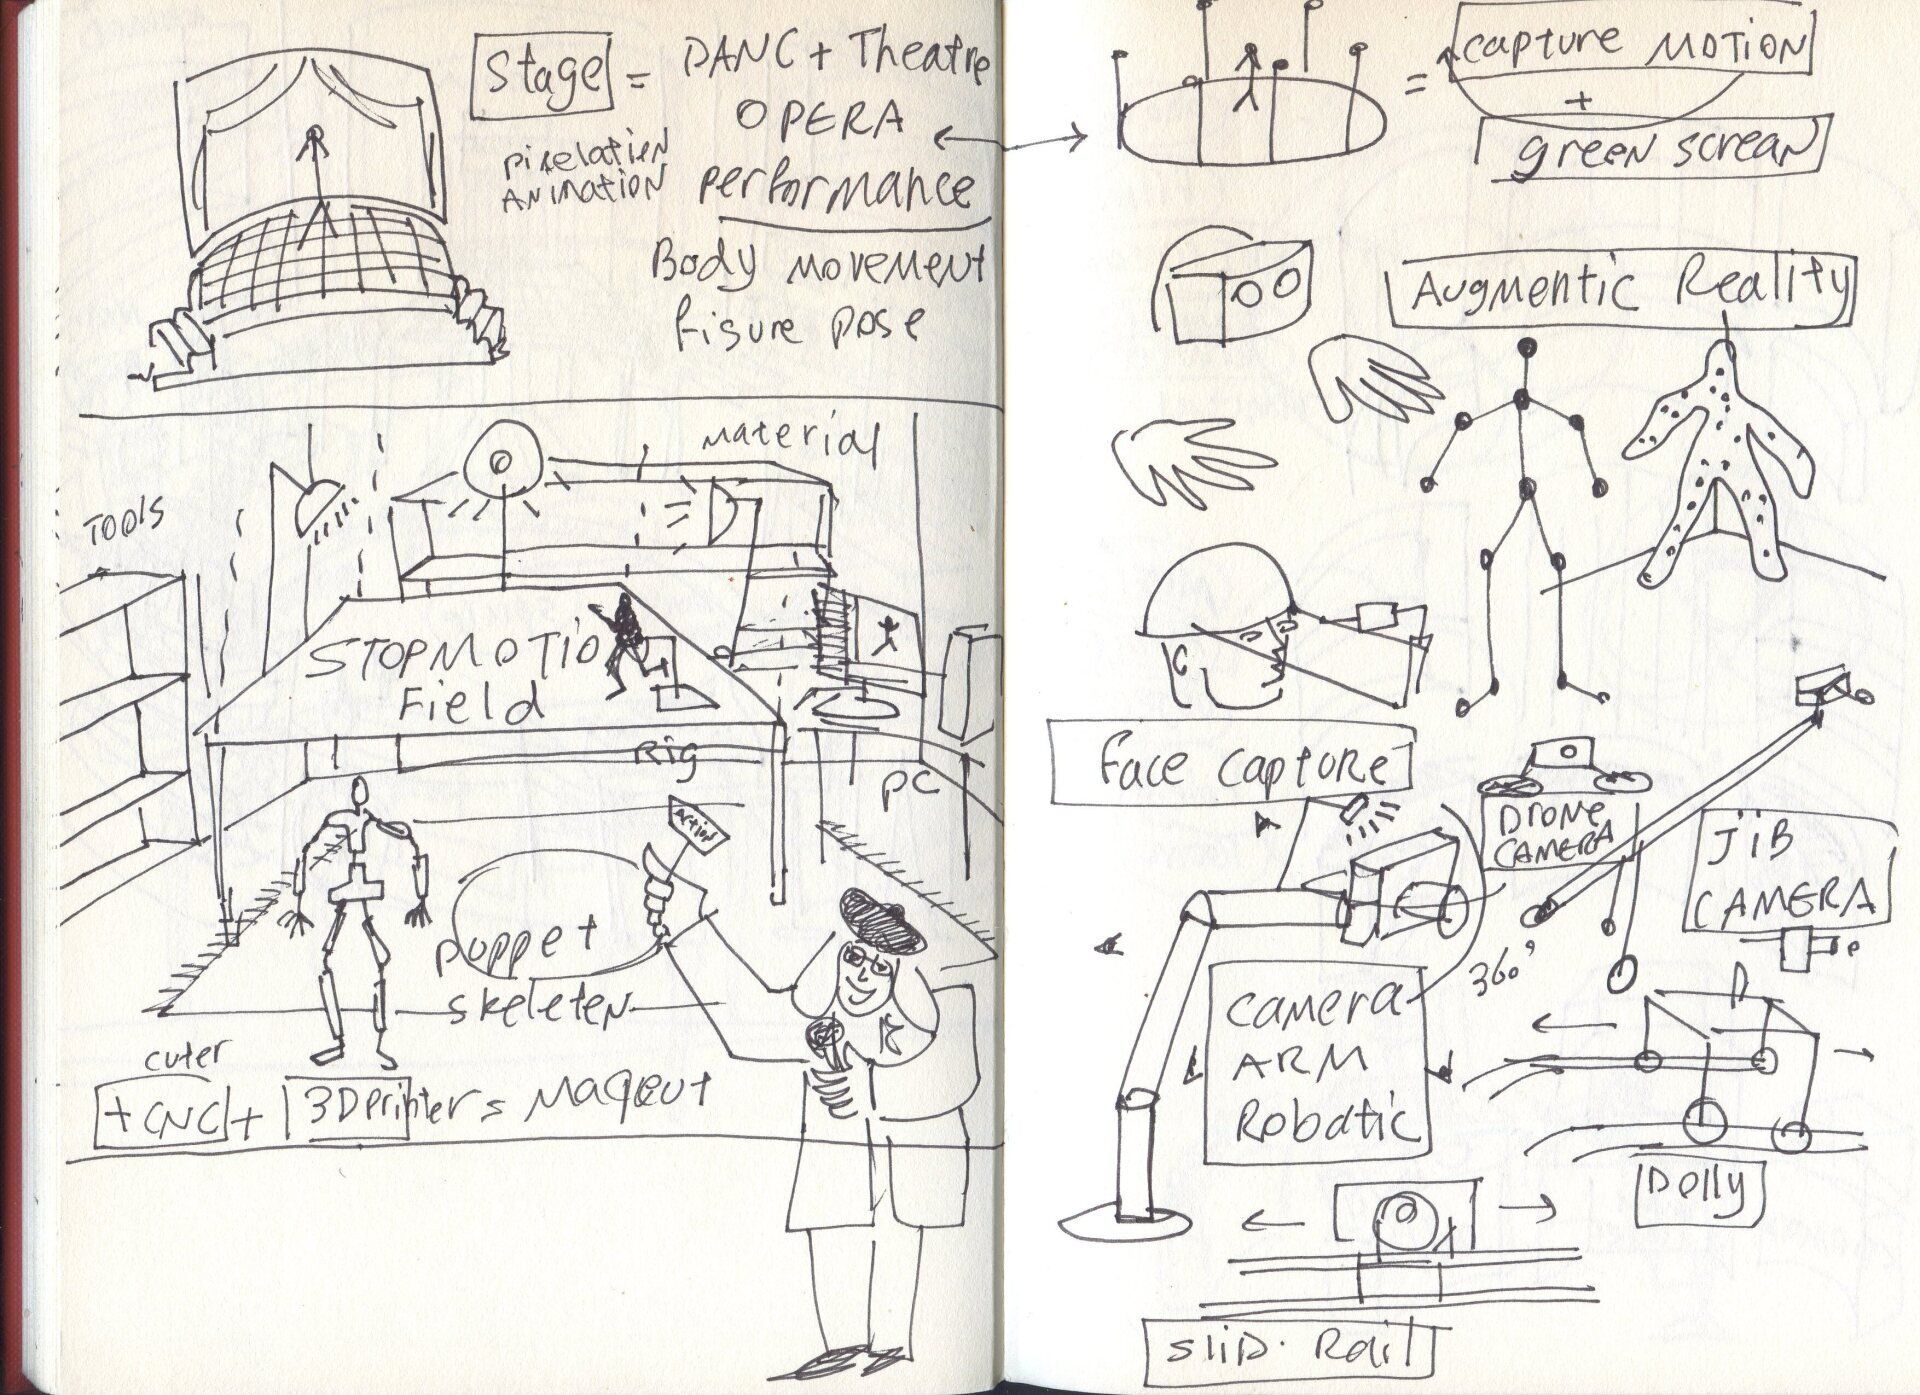 Stage = DANC + Theatre
OPERA
Pixelation
ANimation
performance
Body movement
figure pose
material
Tools
STOPMOTIO
Field
Rig
PC
Action
puppet
skeleten
cuter
+ CNC + 3D printer = Maqeut
= capture MOTION
+
green screan
Augmentic Reality
Face capture
DRONE
CAMERA
JiB
CAMERA
360°
camera
ARM
Robatic
Dolly
Slid. Rail